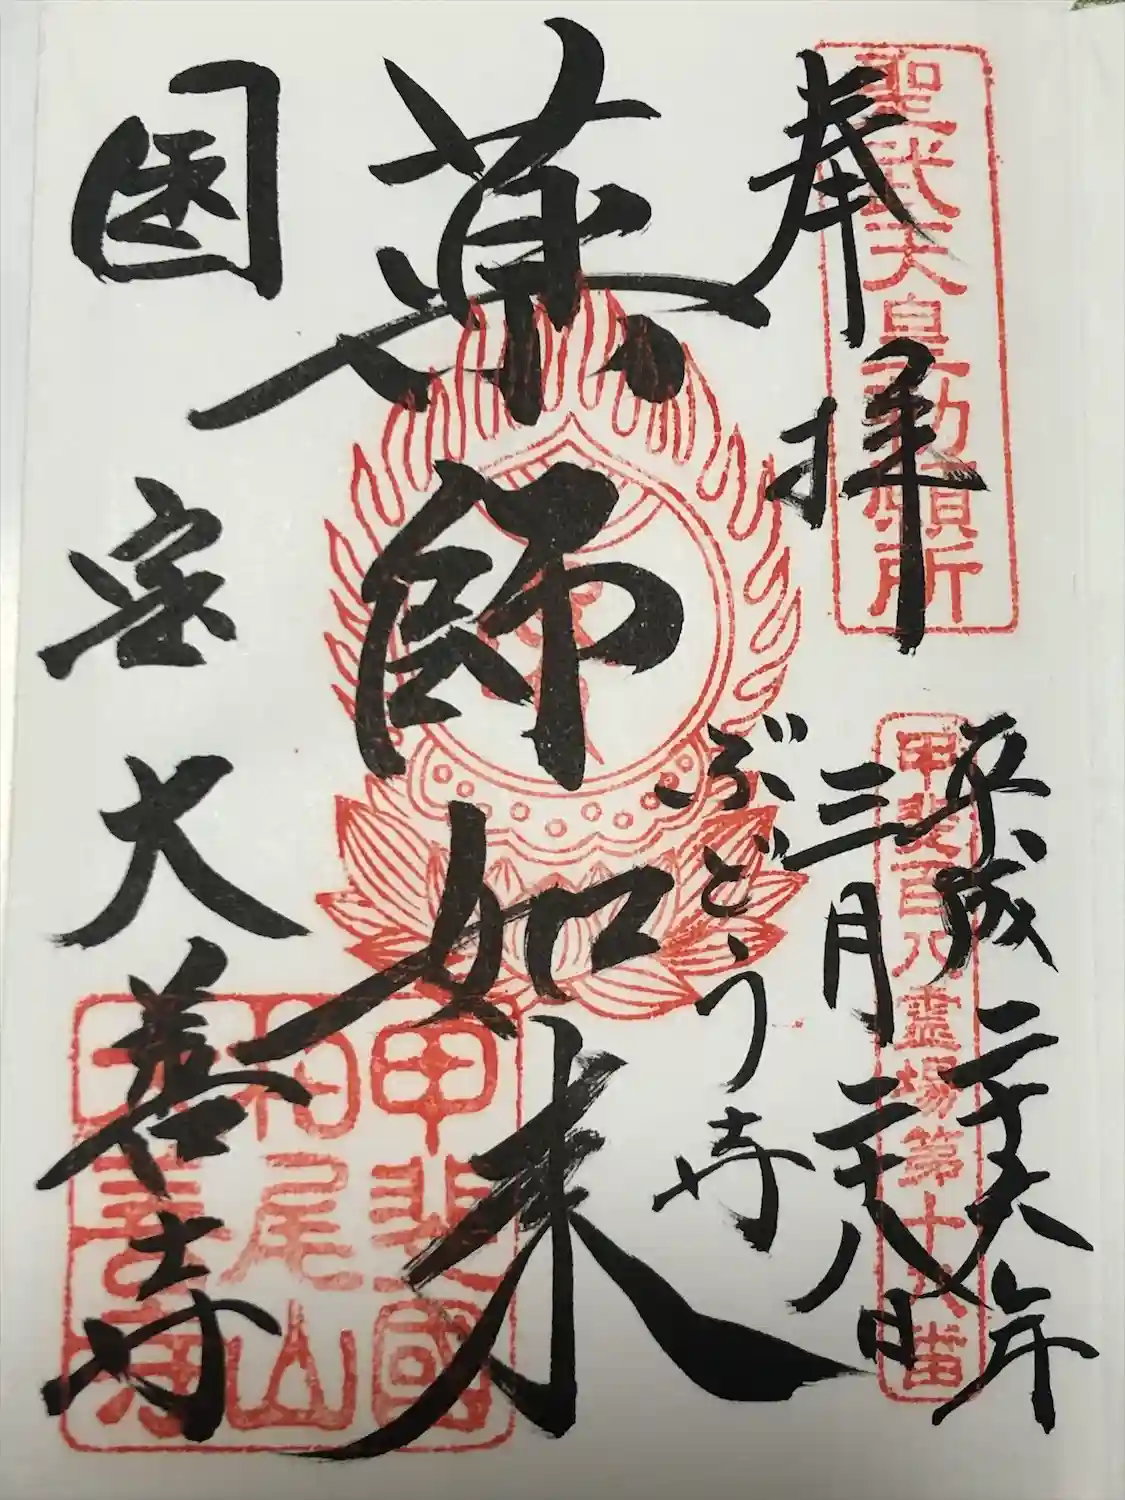 奉拝
聖武天皇勅願所
平成二十六年
三月二十八日
甲斐百八霊場第十六番
ぶどう寺
薬師如来
国宝大善寺
甲斐國
柏尾山
大善寺